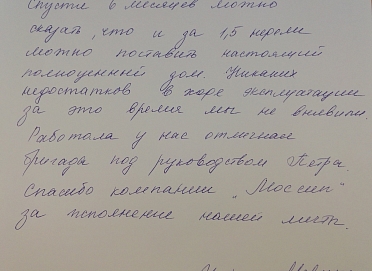 Спустя 6 месяцев можно
сказать, что и за 1,5 недели
можно поставить настоящий
полноценный дом. Никаких
недостатков в ходе эксплуатации
за это время мы не выявили.
Работала у нас отличная
бригада под руководством Петра.
Спасибо компании „Моссип"
за исполнение нашей мечты.